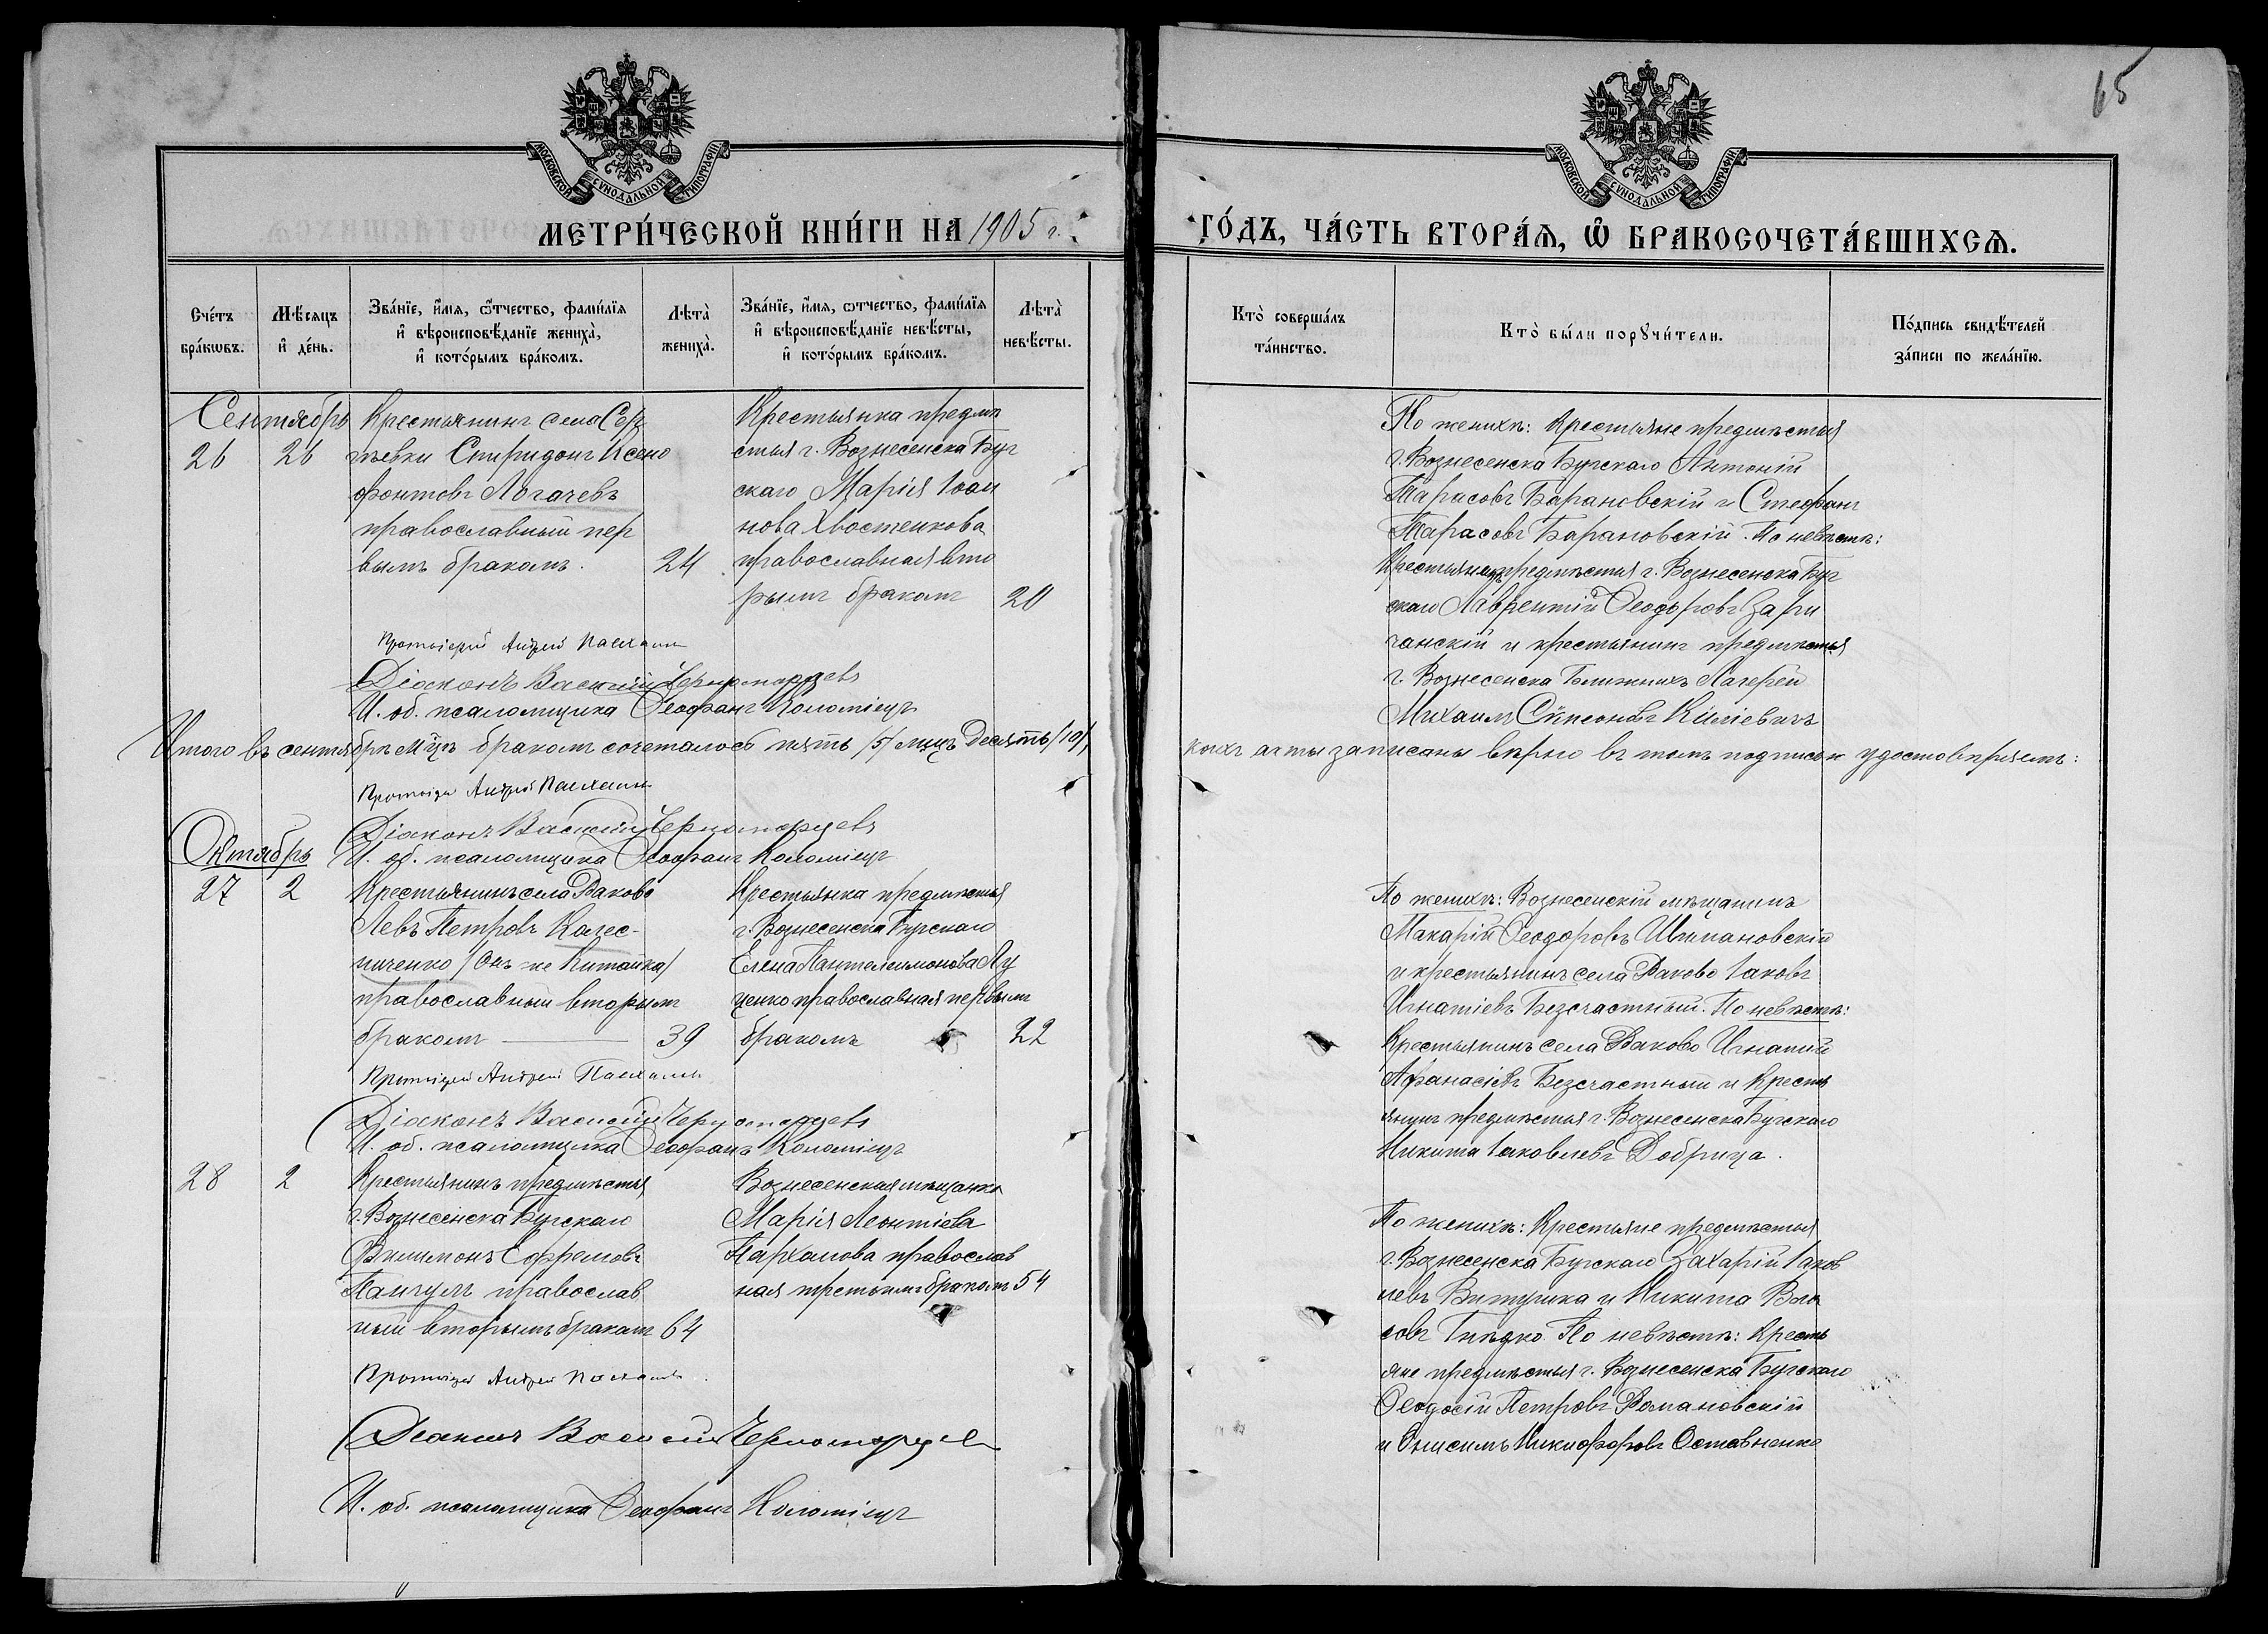 65
МОСКОВСКОЙ СѴНОДАЛЬНОЙ ТИПОГРАФІИ
МОСКОВСКОЙ СѴНОДАЛЬНОЙ ТИПОГРАФІИ
МЕТРИ́ЧЕСКОЙ КНИ́ГИ НА 1905 г.
ГО́ДЪ, ЧА́СТЬ ВТОРА́Ѧ, Ѽ БРАКОСОЧЕТА́ВШИХСѦ.
Сче́тъ
бра́кѡвъ.
Мѣ́сяцъ
и҆ де́нь.
Зва́нїе, и҆́мѧ, ѻ҆́тчество, фами́лїѧ
и҆ вѣроисповѣ́данїе жениха̀,
и҆ кото́рымъ бра́комъ.
Лѣта̀
жениха̀.
Зва́нїе, и҆́мѧ, ѻтчество, фами́лїѧ
и҆ вѣроисповѣ́данїе невѣ́сты,
и҆ кото́рымъ бра́комъ.
Лѣта̀
невѣ́сты.
Кто̀ соверша́лъ
та́инство.
Кто̀ бы́ли порꙋчи́тели.
По́дпись свидѣ́телей
за́писи по жела́нїю.
Сентябрь
26
26
Крестьянинъ села Сер
гѣевки Спиридонъ Ксено
фонтовъ Логачевъ
православный пер
вымъ бракомъ.
24
Крестьянка предмѣ
стья г. Вознесенска Буг
скаго Марія Іоан
нова Хвостенкова
православная вто
рымъ бракомъ
20
Протоіерей Андрей
Діаконъ Василій Черноморцевъ
И. об. псаломщика Ѳеофанъ Коломіецъ
По женихѣ: Крестьяне предмѣстья
г. Вознесенска Бугскаго Антоній
Тарасовъ Барановскій и Стефанъ
Тарасовъ Барановскій. По невѣстѣ:
Крестьянинъ предмѣстья г. Вознесенска Буг
скаго Лаврентій Ѳеодоровъ Зари
чанскій и крестьянинъ предмѣстья
г. Вознесенска Ближнихъ Лагерей
Михаилъ Симеоновъ Киліевичъ
Итого въ сентябрѣ м-цѣ бракомъ сочеталось пять /5/ лицъ десять /10/,
коихъ акты записаны вѣрно въ томъ подписью удостовѣряемъ:
Протоіерей Андрей
Діаконъ Василій Черноморцевъ
И. об. псаломщика Ѳеофанъ Коломіецъ
Октябрь
27
2
Крестьянинъ села Раково
Левъ Петровъ Колес-
ниченко /Онъ-же Китайка/
православный вторымъ
бракомъ
39
Крестьянка предмѣстья
г. Вознесенска Бугскаго
Елена Пантелеимонова Лу
ценко православная первымъ
бракомъ
22
Протоіерей Андрей
Діаконъ Василій Черноморцевъ
И. об. псаломщика Ѳеофанъ Коломіецъ
По женихѣ: Вознесенскій мѣщанинъ
Макарій Ѳеодоровъ Шимановскій
и крестьянинъ села Раково Іаковъ
Игнатіевъ Безсчастный. По невѣстѣ:
Крестьянинъ села Раково Игнатій
Аѳанасіевъ Безсчастный и Кресть
янинъ предмѣстья г. Вознесенска Бугскаго
Никита Іаковлевъ Добрица.
28
2
Крестьянинъ предмѣстья
г. Вознесенска Бугскаго
Филимонъ Ефремовъ
православ
ный вторымъ бракомъ
64
Вознесенская мѣщанка
Марія Леонтіева
Пархомова православ
ная третьимъ бракомъ
54
Протоіерей Андрей
Діаконъ Василій Черноморцевъ
И. об. псаломщика Ѳеофанъ Коломіецъ
По женихѣ: Крестьяне предмѣстья
г. Вознесенска Бугскаго Захарій Іаков
левъ и Никита Вла
совъ Гнѣдко. По невѣстѣ: Кресть
яне предмѣстья г. Вознесенска Бугскаго
Ѳеодосій Петровъ Романовскій
и Онисимъ Никифоровъ Оставненко